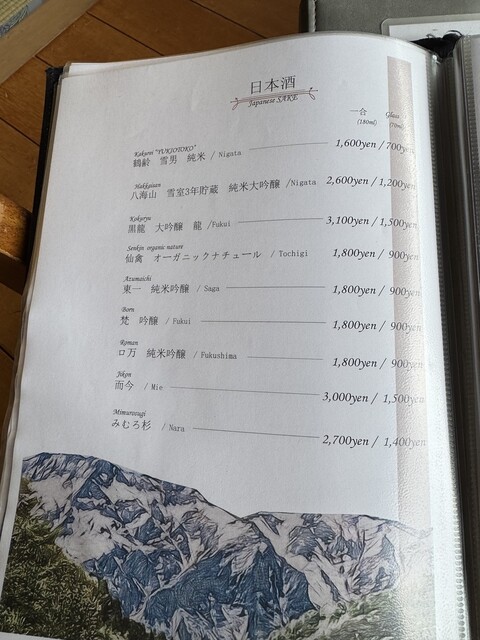 日本酒
Japanese SAKE
一合 Glass
(180ml) (70ml)
Kakurei "YUKIOTOKO"
鶴齢 雪男 純米 / Nigata 1,600yen / 700yen
Hakkaisan
八海山 雪室3年貯蔵 純米大吟醸 /Nigata 2,600yen / 1,200yen
Kokuryu
黒龍 大吟醸 龍 /Fukui 3,100yen / 1,500yen
Senkin organic nature
仙禽 オーガニックナチュール / Tochigi 1,800yen / 900yen
Azumaichi
東一 純米吟醸 / Saga 1,800yen / 900yen
Born
梵 吟醸 / Fukui 1,800yen / 900yen
Roman
ロ万 純米吟醸 / Fukushima 1,800yen / 900yen
Jikon
而今 / Mie 3,000yen / 1,500yen
Mimurosugi
みむろ杉 / Nara 2,700yen / 1,400yen